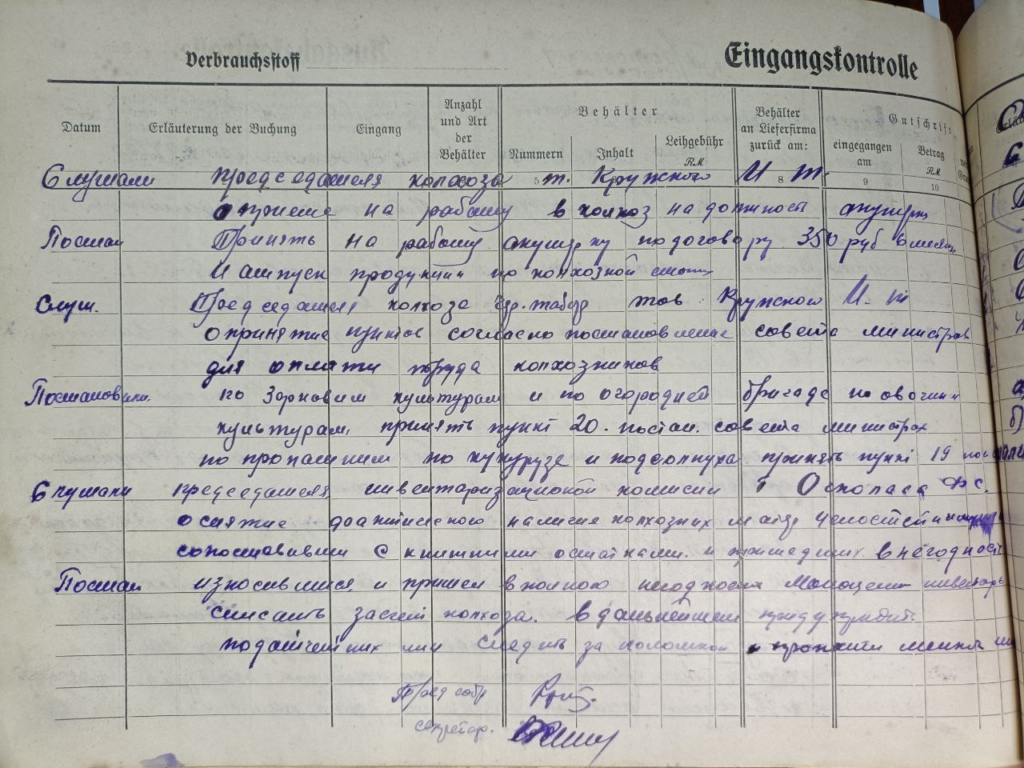 Verbrauchsstoff
Eingangskontrolle
Datum
Erläuterung der Buchung
Eingang
Anzahl und Art der Behälter
Behälter
Nummern
Inhalt
Leihgebühr RM
Behälter an Lieferfirma zurück am:
Gutschrift
eingegangen am
Betrag RM
8 9 10
Слушали председателя колхоза т. Кружского И т.
о приеме на работу в колхоз на должность акушерк
Постан Принять на работу акушерку по договору 350 руб в месяц
И ампуск продукции по колхозной
Слуш. Председателя колхоза тов Кружского И. т
о принятие пунктов согласно постановление совета министров
для оплати труда колхозников
Постановили. по Зерновим культурам и по огородней бригаде по овочним
культурам, принять пункт 20. постан. совета министрох
по пропашним по кукурузе и подсолнуха принять пункт 19
Слушали председателя инвентаризационой комисии т
о снятие наличия колхозних
сопоставивши с книжними остатками. и пришедших в негодность
Постан износившися и пришел в полную негодность инвентарь
списать засчет колхоза. в дальнейшем
следить за
Пред собр
секретор.